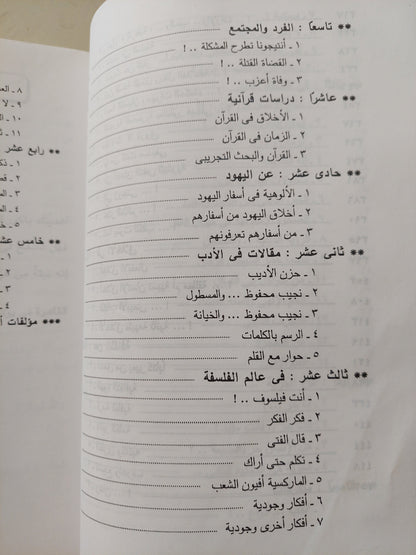 ** تاسعًا : الفرد والمجتمع
١ ـ أنتيجونا تطرح المشكلة .. !
٢ ـ القضاة القتلة .. !
٣ ـ وفاة أعزب .. !
** عاشرًا : دراسات قرآنية
١ ـ الأخلاق في القرآن
٢ ـ الزمان في القرآن
٣ ـ القرآن والبحث التجريبى
** حادى عشر : عن اليهود
١ ـ الألوهية في أسفار اليهود
٢ ـ أخلاق اليهود من أسفارهم
٣ ـ من أسفارهم تعرفونهم
** ثانى عشر : مقالات فى الأدب
١ ـ حزن الأديب
٢ ـ نجيب محفوظ ... والمسطول
٣ ـ نجيب محفوظ ... والخيانة
٤ ـ الرسم بالكلمات
٥ ـ حوار مع القلم
** ثالث عشر : فى عالم الفلسفة
١ ـ أنت فيلسوف .. !
٢ ـ فكر الفكر
٣ ـ قال الفتى
٤ ـ تكلم حتى أراك
٥ ـ الماركسية أفيون الشعب
٦ ـ أفكار وجودية
٧ ـ أفكار أخرى وجودية
٨ ـ
٩ ـ لا
١٠ ـ
١١ ـ
** رابع عشر
١ ـ
٢ ـ
٣ ـ
٤ ـ
٥ ـ
** خامس عشر
١ ـ
٢ ـ
٣ ـ
٤ ـ
*** مؤلفات